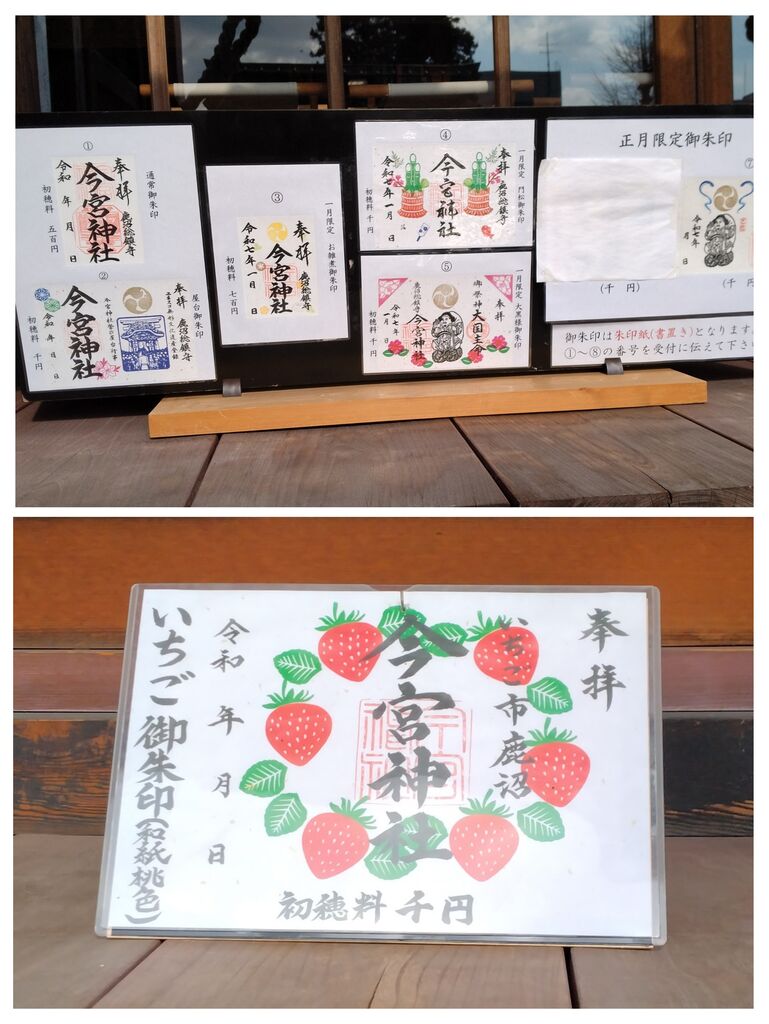 ①
通常御朱印
奉拝
今宮神社
令和 年 月 日
初穂料 五百円
②
屋台御朱印
奉拝
鹿沼総鎮守
今宮神社
令和 年 月 日
初穂料 千円
③
一月限定 お雑煮御朱印
奉拝
鹿沼総鎮守
今宮神社
令和七年一月 日
初穂料 七百円
④
一月限定 門松御朱印
奉拝
鹿沼総鎮守
今宮神社
令和七年一月 日
初穂料 千円
⑤
一月限定 大黒様御朱印
奉拝
御祭神 大国主命
鹿沼総鎮守
今宮神社
令和七年
一月 日
初穂料 千円
正月限定御朱印
⑦
奉拝
令和七年
(千 円)
(千 円)
御朱印は朱印紙(書置き)となります。
①~⑧の番号を受付に伝えて下さ
奉拝
いちご市鹿沼
今宮神社
令和 年 月 日
いちご御朱印(和紙桃色)
初穂料 千円